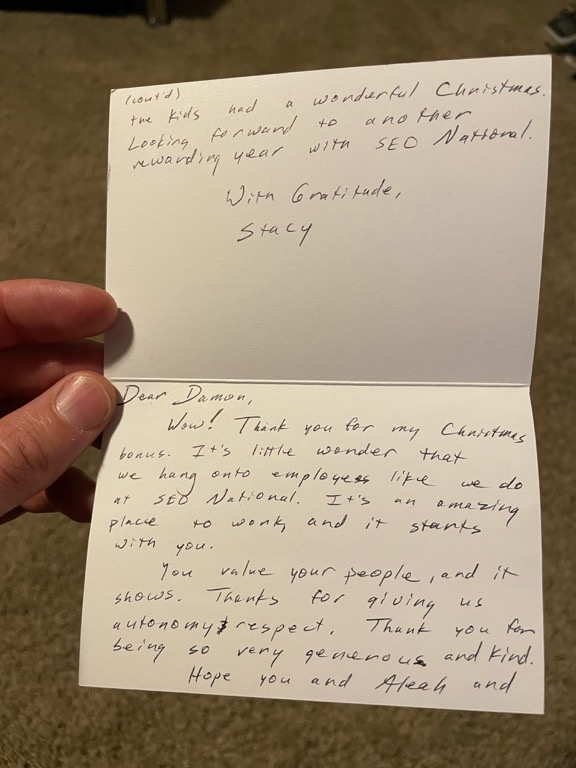 Dear Damon,
Wow! Thank you for my Christmas
bonus. It's little wonder that
we hang onto employees like we do
at SEO National. It's an amazing
place to work, and it starts
with you.
You value your people, and it
shows. Thanks for giving us
autonomy & respect. Thank you for
being so very generous and kind.
Hope you and Aleah and
(cont'd)
the kids had a wonderful Christmas.
Looking forward to another
rewarding year with SEO National.
With Gratitude,
Stacy